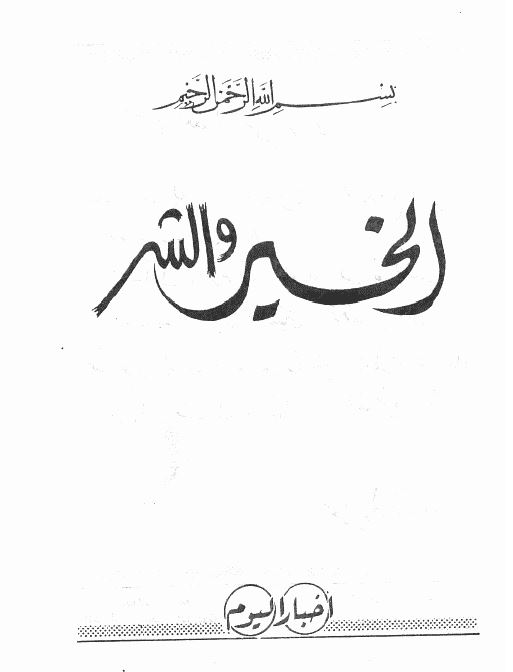 بِسْمِ اللَّهِ الرَّحْمَنِ الرَّحِيمِ
الخير والشر
أخبار اليوم